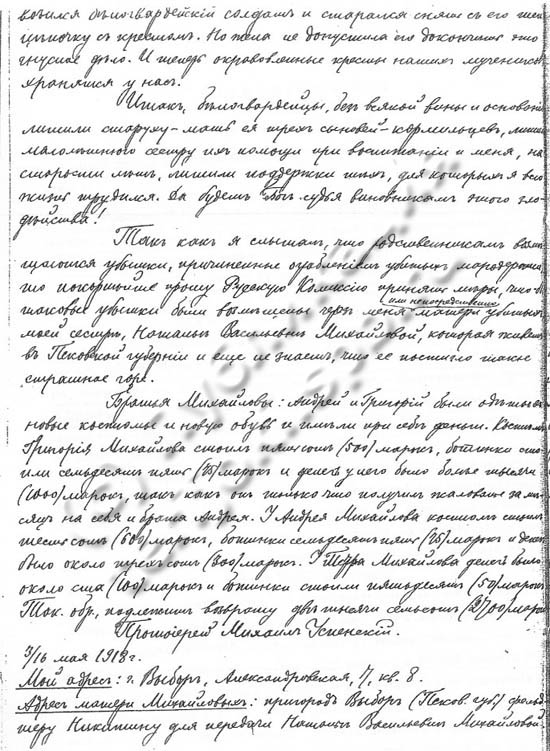 вался бѣлогвардейскій солдатъ и старался снять съ его шеи
цѣпочку съ крестомъ. Но жена не допустила его докончить это
гнусное дѣло. И теперь окровавленные кресты нашихъ мучениковъ
хранятся у насъ.
Итакъ, бѣлогвардейцы, безъ всякой вины и основанія
лишили старуху-мать ея трехъ сыновей-кормильцевъ, лишили
малолѣтнюю сестру ихъ помощи при воспитаніи и меня, на
старости лѣтъ, лишили поддержки тѣхъ, для которыхъ я всю
жизнь трудился. Да будетъ Богъ судья виновникамъ этого зло-
дѣйства!
Такъ какъ я слышалъ, что родственникамъ возмѣ-
щаются убытки, причиненные ограбленіемъ убитыхъ мародерами,
то покорнѣйше прошу Русскую Комиссію принять мѣры, чтобы
таковые убытки были возмѣщены черезъ меня (или непосредственно) матери убитыхъ
моей сестрѣ, Натальѣ Васильевнѣ Михайловой, которая живетъ
въ Псковской губерніи и еще не знаетъ, что ее постигло такое
страшное горе.
Братья Михайловы: Андрей и Григорій были одѣты въ
новые костюмы и новую обувь и имѣли при себѣ деньги. Костюмъ
Григорія Михайлова стоилъ пятьсотъ (500) марокъ, ботинки сто-
или семьдесятъ пять (75) марокъ и денегъ у него было болѣе тысячи
(1000) марокъ, такъ какъ онъ только что получилъ жалованье за мѣ-
сяцъ на себя и брата Андрея. У Андрея Михайлова костюмъ стоилъ
шестьсотъ (600) марокъ, ботинки семьдесятъ пять (75) марокъ и денегъ
было около трехъ сотъ (300) марокъ. У Петра Михайлова денегъ было
около ста (100) марокъ и ботинки стоили пятьдесятъ (50) марокъ.
Так. обр., подлежитъ возврату двѣ тысячи семьсотъ (2700) марокъ.
Протоіерей Михаилъ Успенскій.
3/16 мая 1918 г.
Мой адресъ: г. Выборгъ, Александровская, 7, кв. 8.
Адресъ матери Михайловыхъ: пригородъ Выборъ (Псков. губ.) фельд-
шеру Никитину для передачи Натальѣ Васильевнѣ Михайловой.